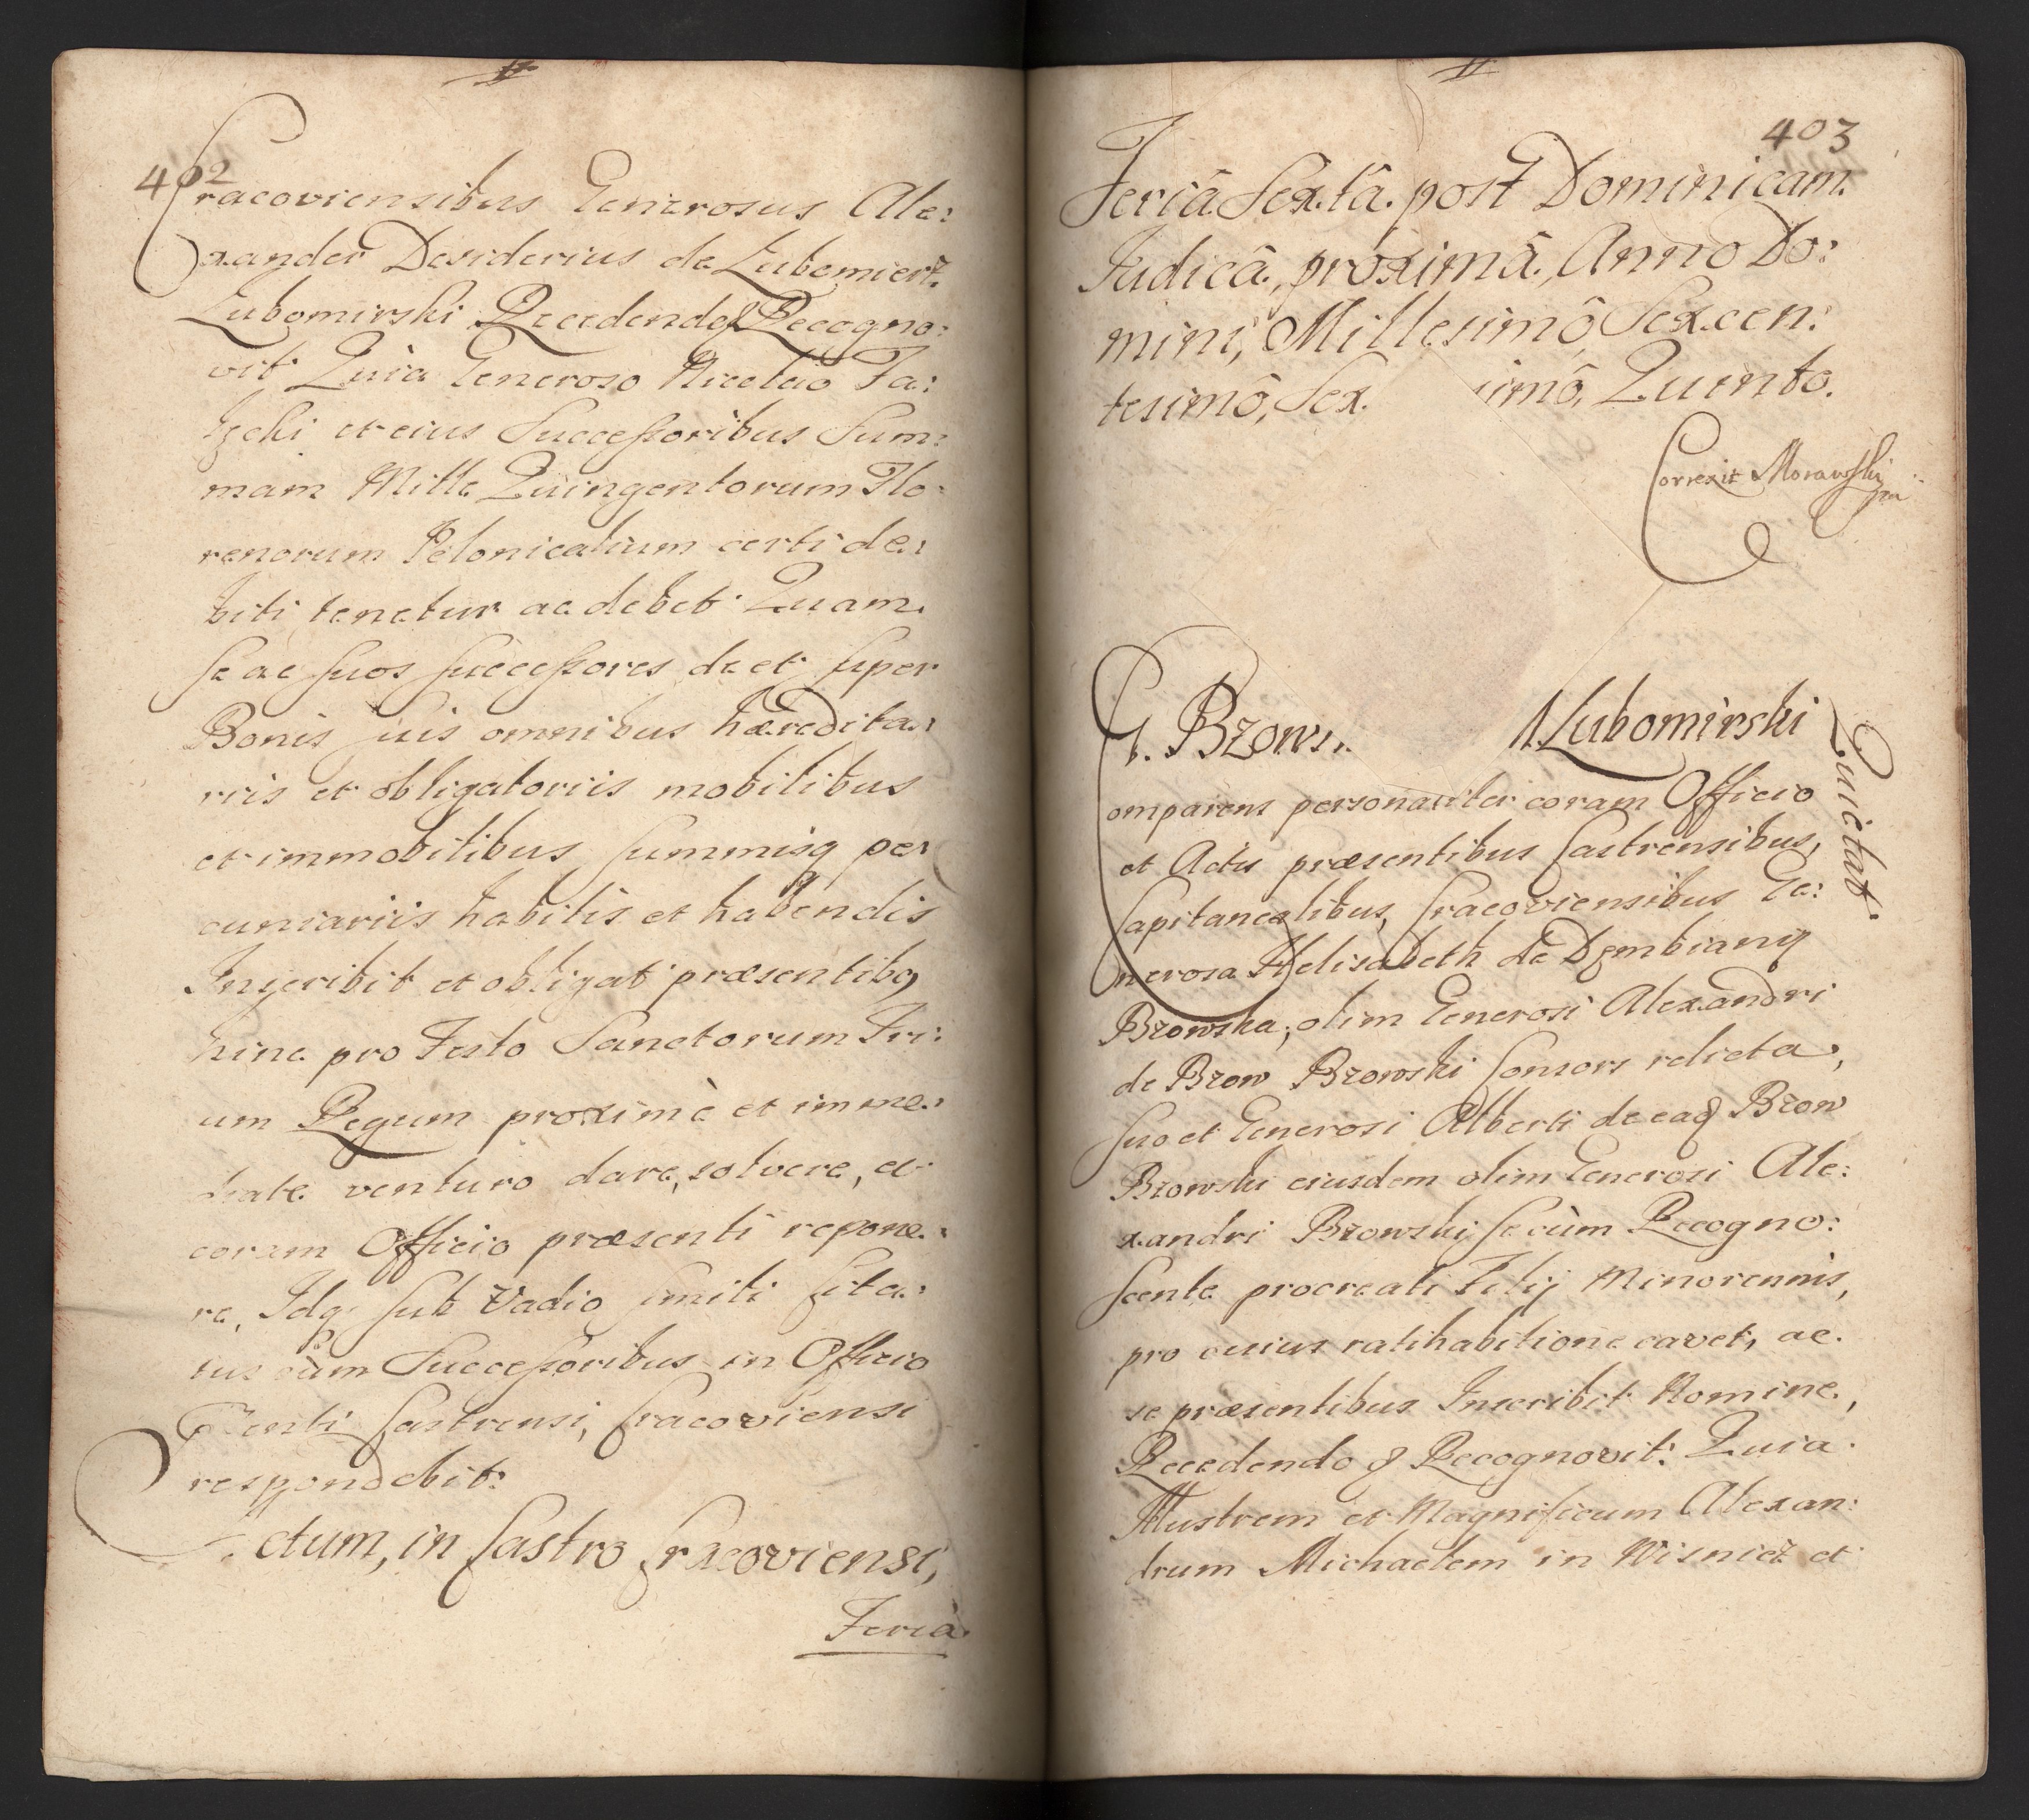 402
Cracoviensibus Generosus Ale:
xander Desiderius de Lubomierz
Lubomirski Recedendoq Recogno:
vit Quia Generoso Nicolao Ja:
ckj et eius Successoribus Sum:
mam Mille Quingentorum Flo:
renorum Polonicalium certi de:
biti tenetur ac debet Quam
se ac suos successores de et super
Bonis suis omnibus hæredita:
riis et obligatoriis mobilibus
et immobilibus summisq pe:
cuniariis habitis et habendis
Inscribit et obligat præsentibq
hinc pro Festo Sanctorum Tri:
um Regum proximè et imme:
diate venturo dare, solvere, et
coram Officio præsenti repone:
re, Idq sub Vadio simili cita:
tus cùm Successoribus in Officio
Pnti Castrensi, Cracoviensi
respondebit.
Actum, in Castro Cracoviensi,
Feriâ
403
Feriâ Sextâ post Dominicam
Judicâ, próximâ, Anno Do:
mini, Millesimô Sexcen:
tesimô, Sex imô, Quinto.
Correxit Morawski
G. Brzows. A Lubomirski
Quietat.
Comparens personaliter coram Officio
et Actis præsentibus Castrensibus,
Capitanealibus, Cracoviensibus Ge:
nerosa Helisabeth de Dembiany
Bzowska, olim Generosi Alexandri
de Bzow Bzowski Consors relicta,
suo et Generosi Alberti de eaq Bzow
Bzowski eiusdem olim Generosi Ale:
xandri Bzowski secùm Recogno:
scente procreati Filij Minorennis,
pro cuius ratihabitione cavet, ac
se præsentibus Inscribit Nomine,
Recedendo q Recognovit: Quia
Illustrem et Magnificum Alexan:
drum Michaelem in Wisnicz et